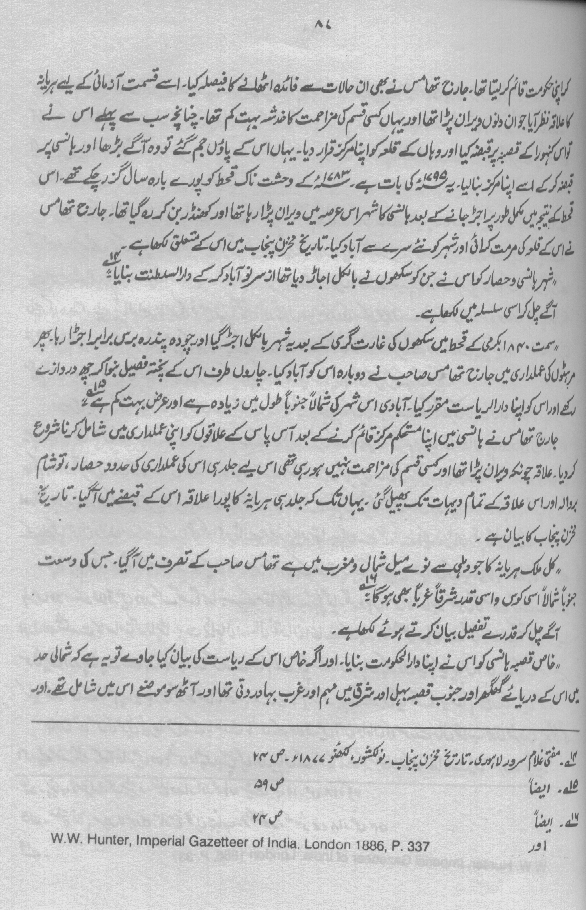 ۸۷
کر اپنی حکومت قائم کر لیتا تھا۔ جارج تھامس نے بھی ان حالات سے فائدہ اٹھانے کا فیصلہ کیا۔ اسے قسمت آزمائی کے لیے ہریانہ
کا علاقہ نظر آیا جو ان دنوں ویران پڑا تھا اور یہاں کسی قسم کی مزاحمت کا خدشہ بہت کم تھا۔ چنانچہ سب سے پہلے اس نے
تو اس کنہوا کے قصبہ پر قبضہ کیا اور وہاں کے قلعہ کو اپنا مرکز قرار دیا۔ یہاں اس کے پاؤں جم گئے تو وہ آگے بڑھا اور ہانسی پر
قبضہ کر کے اسے اپنا مرکز بنا لیا۔ یہ ۱۷۹۵ء کی بات ہے۔ ۱۷۸۳ء کے دہشت ناک قحط کو پورے بارہ سال گزر چکے تھے۔ اس
قحط کے نتیجہ میں مکمل طور پر اجڑ جانے کے بعد ہانسی کا شہر اس عرصہ میں ویران پڑا رہا تھا اور کھنڈر بن کر رہ گیا تھا۔ جارج تھامس
نے اس کے قلعہ کی مرمت کرائی اور شہر کو نئے سرے سے آباد کیا۔ تاریخ مخزن پنجاب میں اس کے متعلق لکھا ہے۔
"شہر ہانسی و حصار کو اس نے جن کو سکھوں نے بالکل اجاڑ دیا تھا از سر نو آباد کر کے دار السلطنت بنایا۔"۱۴
آگے چل کر اسی سلسلہ میں لکھا ہے۔
"سمت ۱۸۴۰ بکرمی کے قحط میں سکھوں کی غارت گری کے بعد یہ شہر بالکل اجڑ گیا اور چودہ پندرہ برس برابر اجڑا رہا۔ پھر
مرہٹوں کی عملداری میں جارج تھامس صاحب نے دوبارہ اس کو آباد کیا۔ چاروں طرف اس کے پختہ فصیل بنوا کر چھ دروازے
رکھے اور اس کو اپنا دار الریاست مقرر کیا۔ آبادی اس شہر کی شمالاً جنوباً طول میں زیادہ ہے اور عرض بہت کم ہے۔"۱۵
جارج تھامس نے ہانسی میں اپنا مستحکم مرکز قائم کرنے کے بعد آس پاس کے علاقوں کو اپنی عملداری میں شامل کرنا شروع
کر دیا۔ علاقہ چونکہ ویران پڑا تھا اور کسی قسم کی مزاحمت نہیں ہو رہی تھی اس لیے جلد ہی اس کی عملداری کی حدود حصار، توشام
بروالہ اور اس علاقہ کے تمام دیہات تک پھیل گئی۔ یہاں تک کہ جلد ہی ہریانہ کا پورا علاقہ اس کے قبضے میں آ گیا۔ تاریخ
مخزن پنجاب کا بیان ہے۔
"کل ملک ہریانہ کا جو دہلی سے نوے میل شمال و مغرب میں ہے تھامس صاحب کے تصرف میں آ گیا۔ جس کی وسعت
جنوباً شمالاً اسی کوس و اسی قدر شرقاً غرباً بھی ہو گا۔"۱۶
آگے چل کر قدرے تفصیل بیان کرتے ہوئے لکھا ہے۔
"خاص قصبہ ہانسی کو اس نے اپنا دار الحکومت بنایا۔ اور اگر خاص اس کے ریاست کی بیان کیا جاوے تو یہ ہے کہ شمالی حد
میں اس کے دریائے گھگھر اور جنوب قصبہ بہل اور مشرق میں مہم اور غرب بہادرہ تھا اور آٹھ سو موضع اس میں شامل تھے۔ اور
۱۴۔ مفتی غلام سرور لاہوری۔ تاریخ مخزن پنجاب۔ نولکشور، لکھنؤ ۱۸۷۷ء۔ ص ۲۴
۱۵۔ ایضاً ص ۵۹
۱۶۔ ایضاً ص ۲۴
اور W.W. Hunter, Imperial Gazetteer of India. London 1886, P. 337